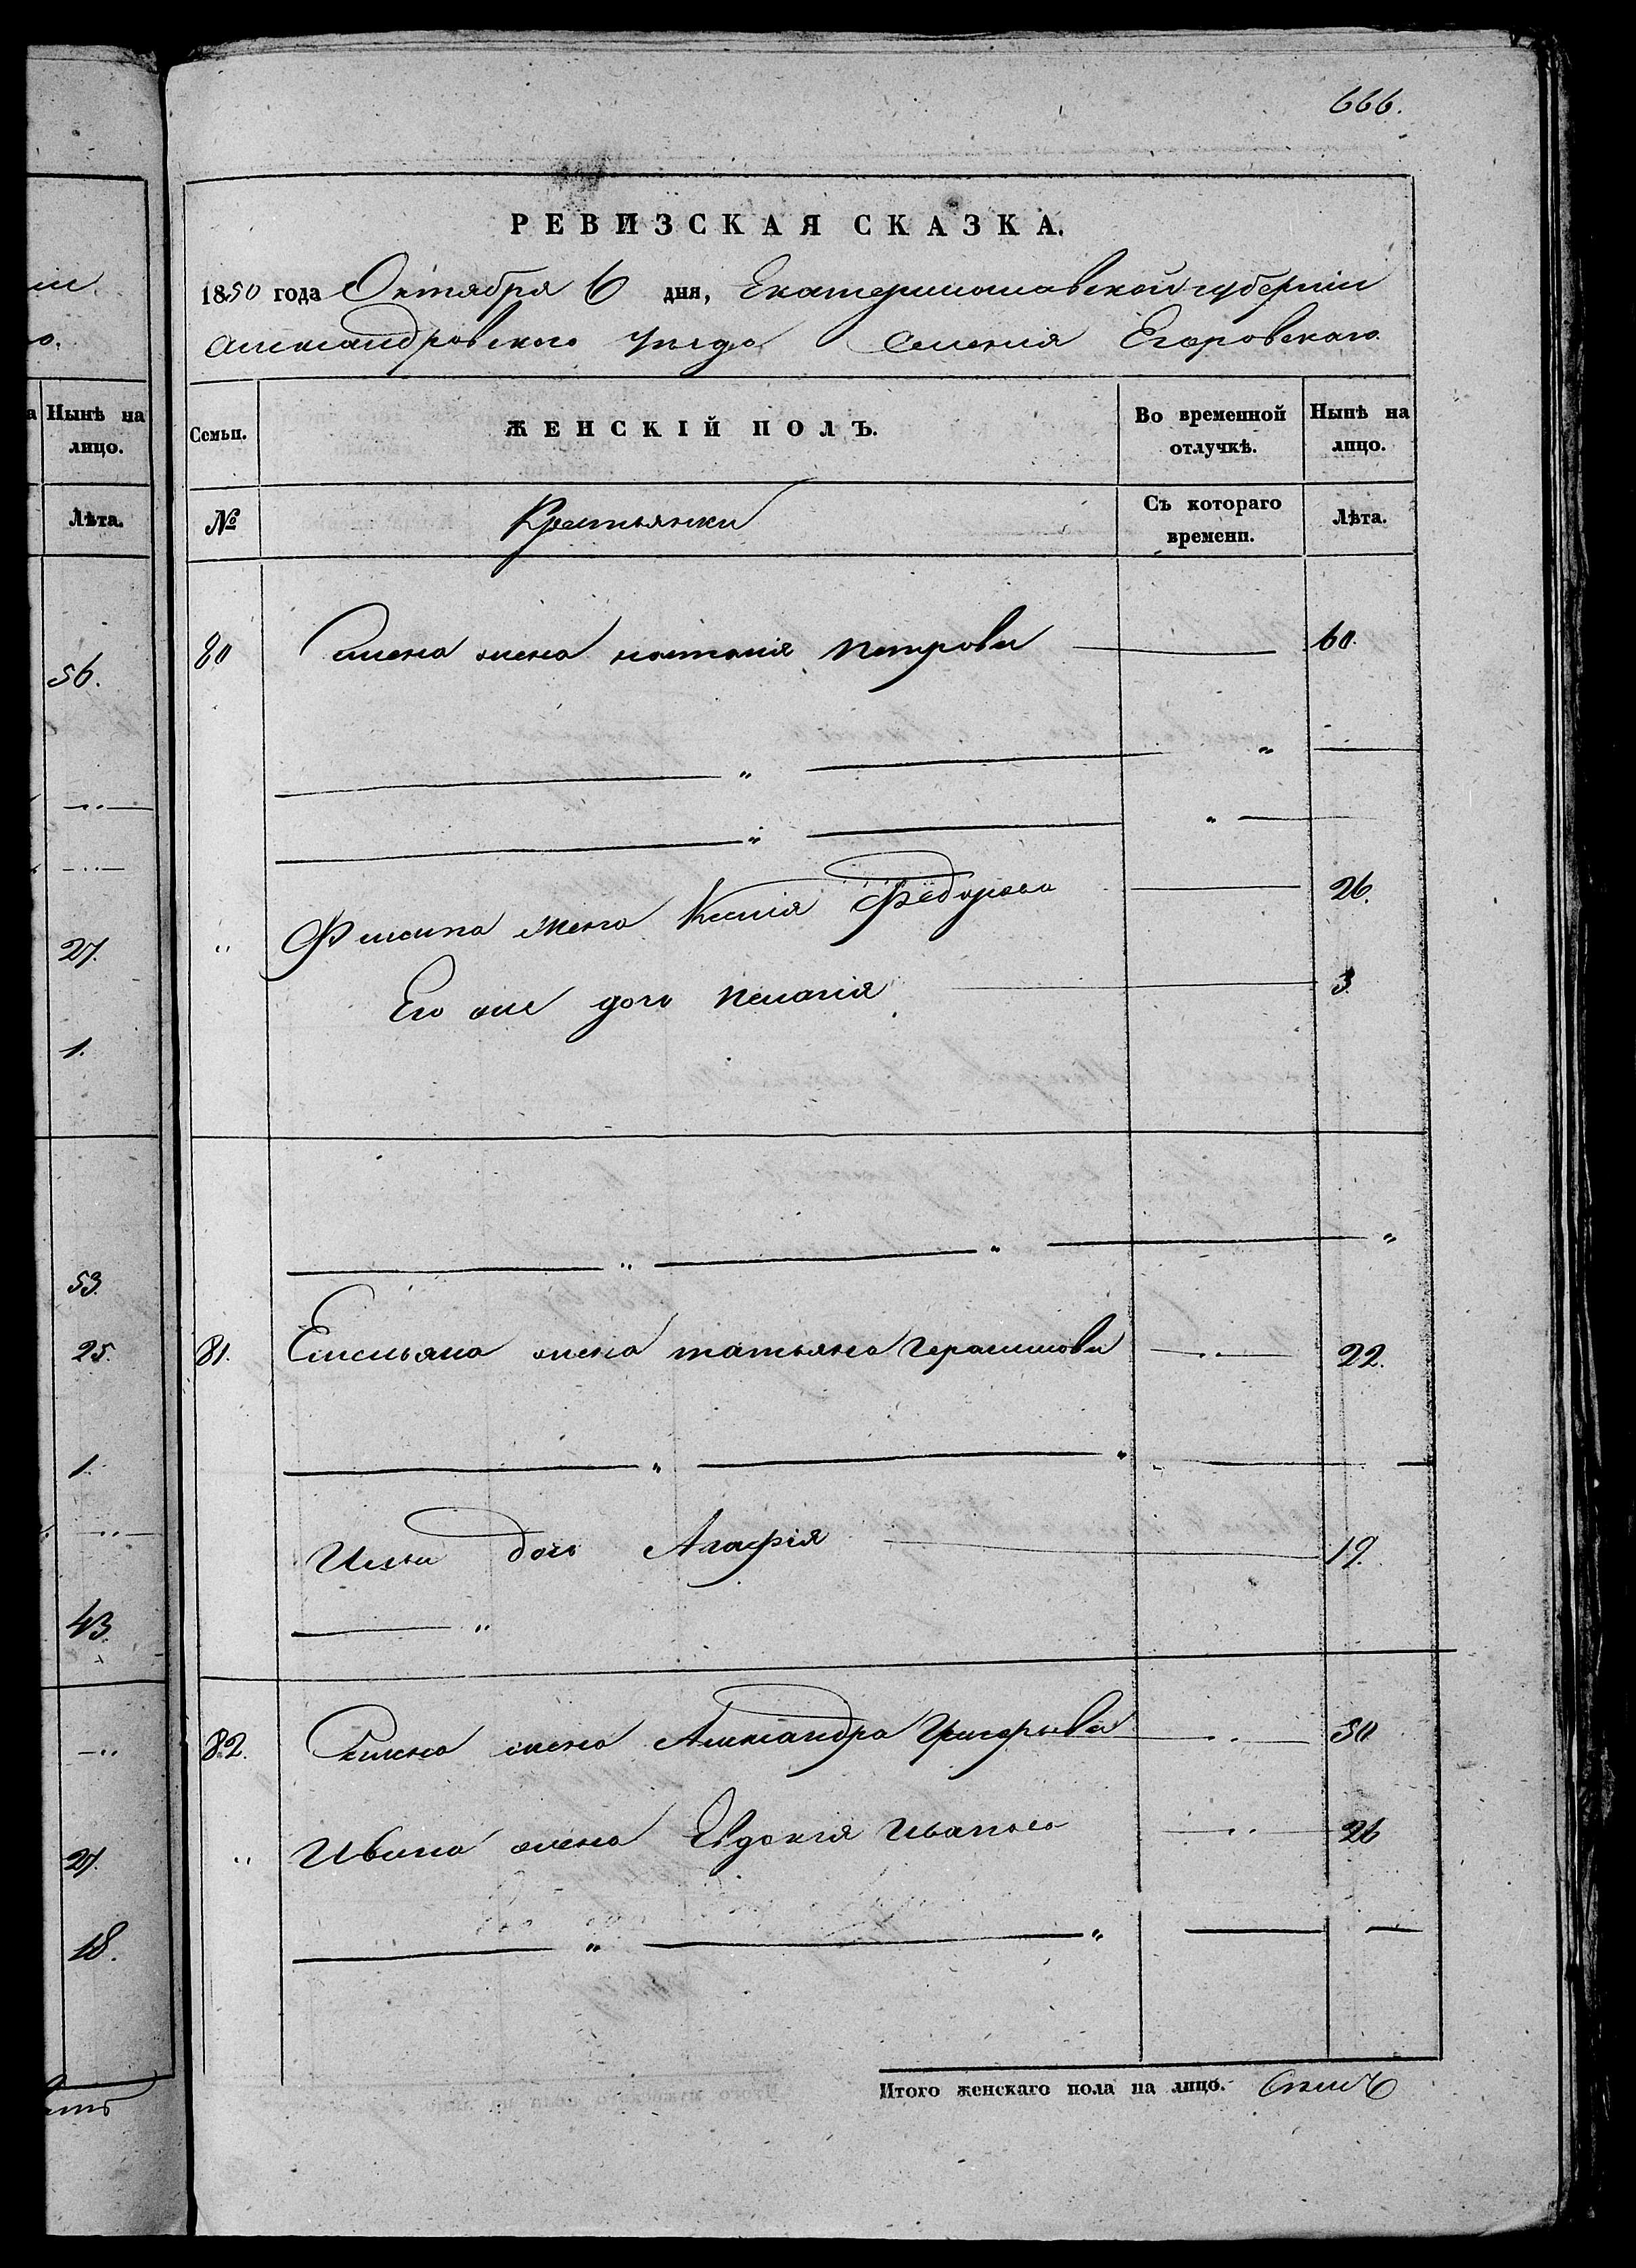 666.
РЕВИЗСКАЯ СКАЗКА.
1850 года Октября 6 дня, Екатеринославской губернии
Александровского уезда Селения Егоровского
Семьи. ЖЕНСКІЙ ПОЛЪ. Во временной отлучкѣ. Нынѣ на лицо.
№ Крестьянки Съ котораго времени. Лѣта.
80 жена Петрова 60.
"
"
" жена Ксенія Федорова 26.
Его же дочь Пелагія 3
"
81. Емельяна жена Татьяна Герасимова 22.
"
Ильи дочь Агафія 19.
"
82. жена Александра Григорьева 50
" Ивана жена Евдокія Иванова 26
"
Итого женскаго пола на лицо.
Нынѣ на лицо.
Лѣта.
56.
27.
1.
53.
25.
1.
43.
27.
18.